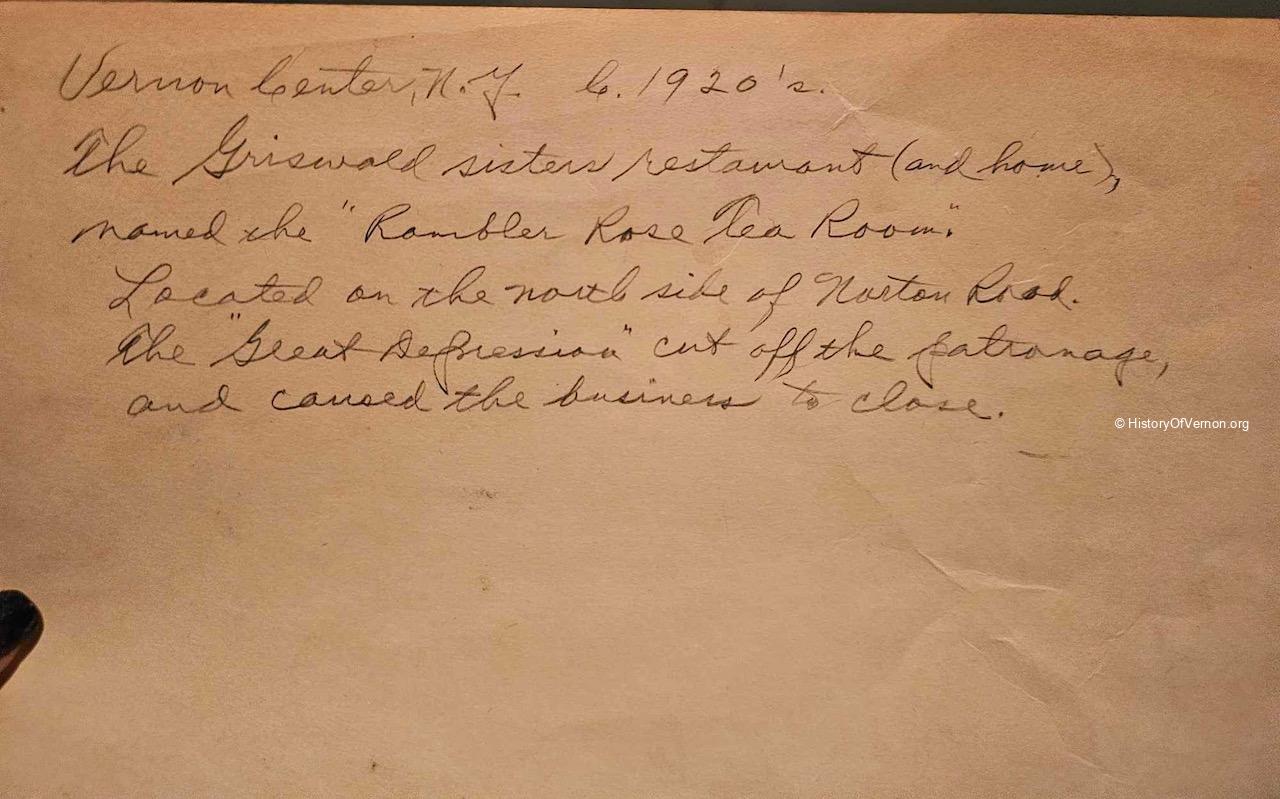 Vernon Center, N.Y. C. 1920's.
The Griswald sisters restaurant (and home),
named the "Rambler Rose Tea Room".
Located on the north side of Norton Road.
The "Great Depression" cut off the patronage,
and caused the business to close.
© HistoryOfVernon.org